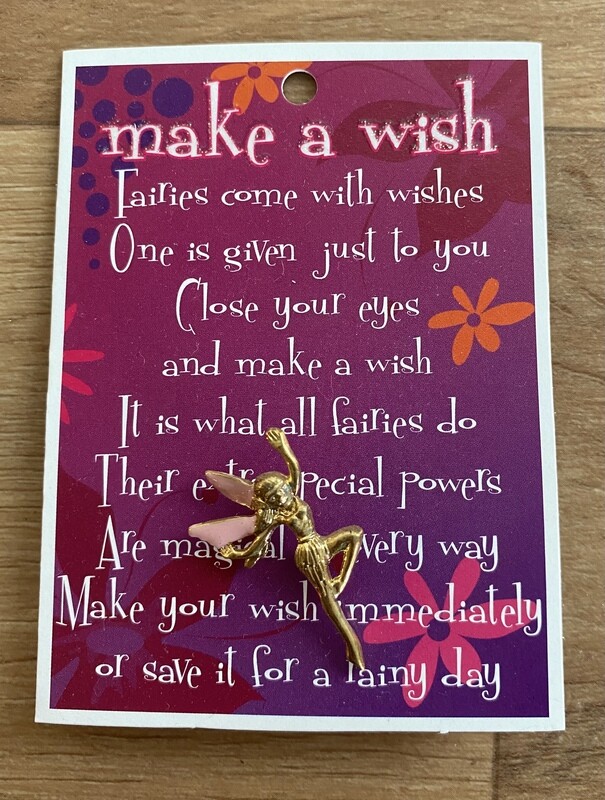 make a wish
Fairies come with wishes
One is given just to you
Close your eyes
and make a wish
It is what all fairies do
Their extra special powers
Are magical every way
Make your wish immediately
or save it for a rainy day